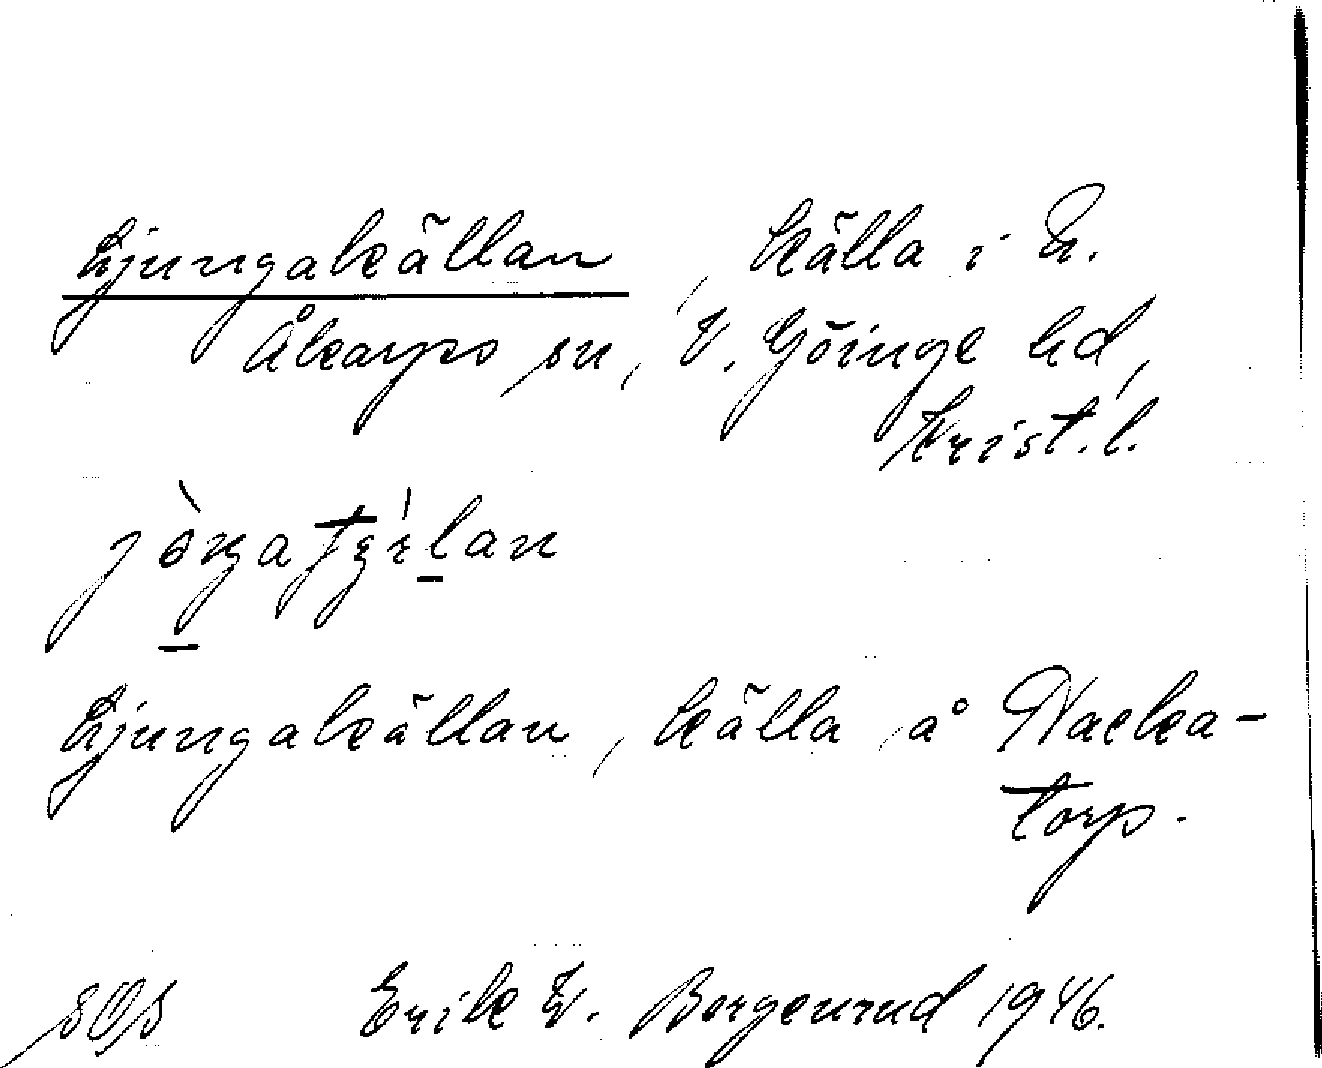 Ljungakällan, källa i N.
Åkarps sn, V. Göinge hd,
Krist. l.
Ljungakällan, källa å Nacka-
torp.
SOS Erik W. Borgenrud 1946.